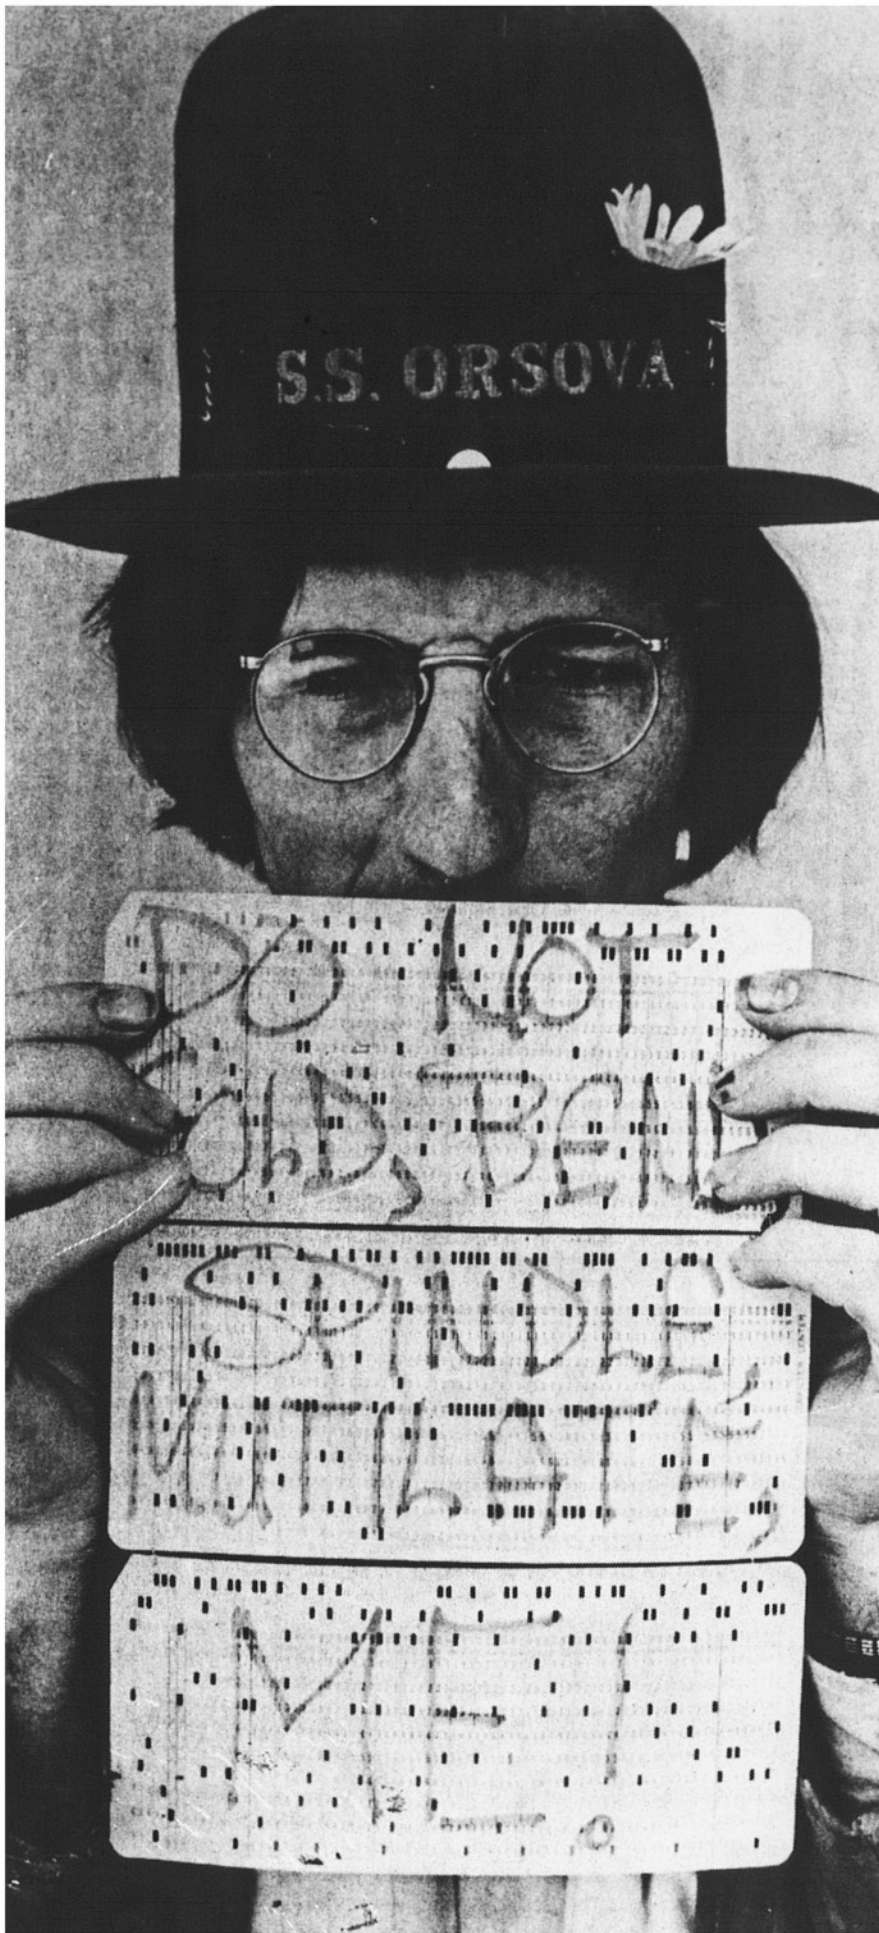 S.S. ORSOVA
DO NOT
FOLD, BEND
SPINDLE,
MUTILATE,
ME!